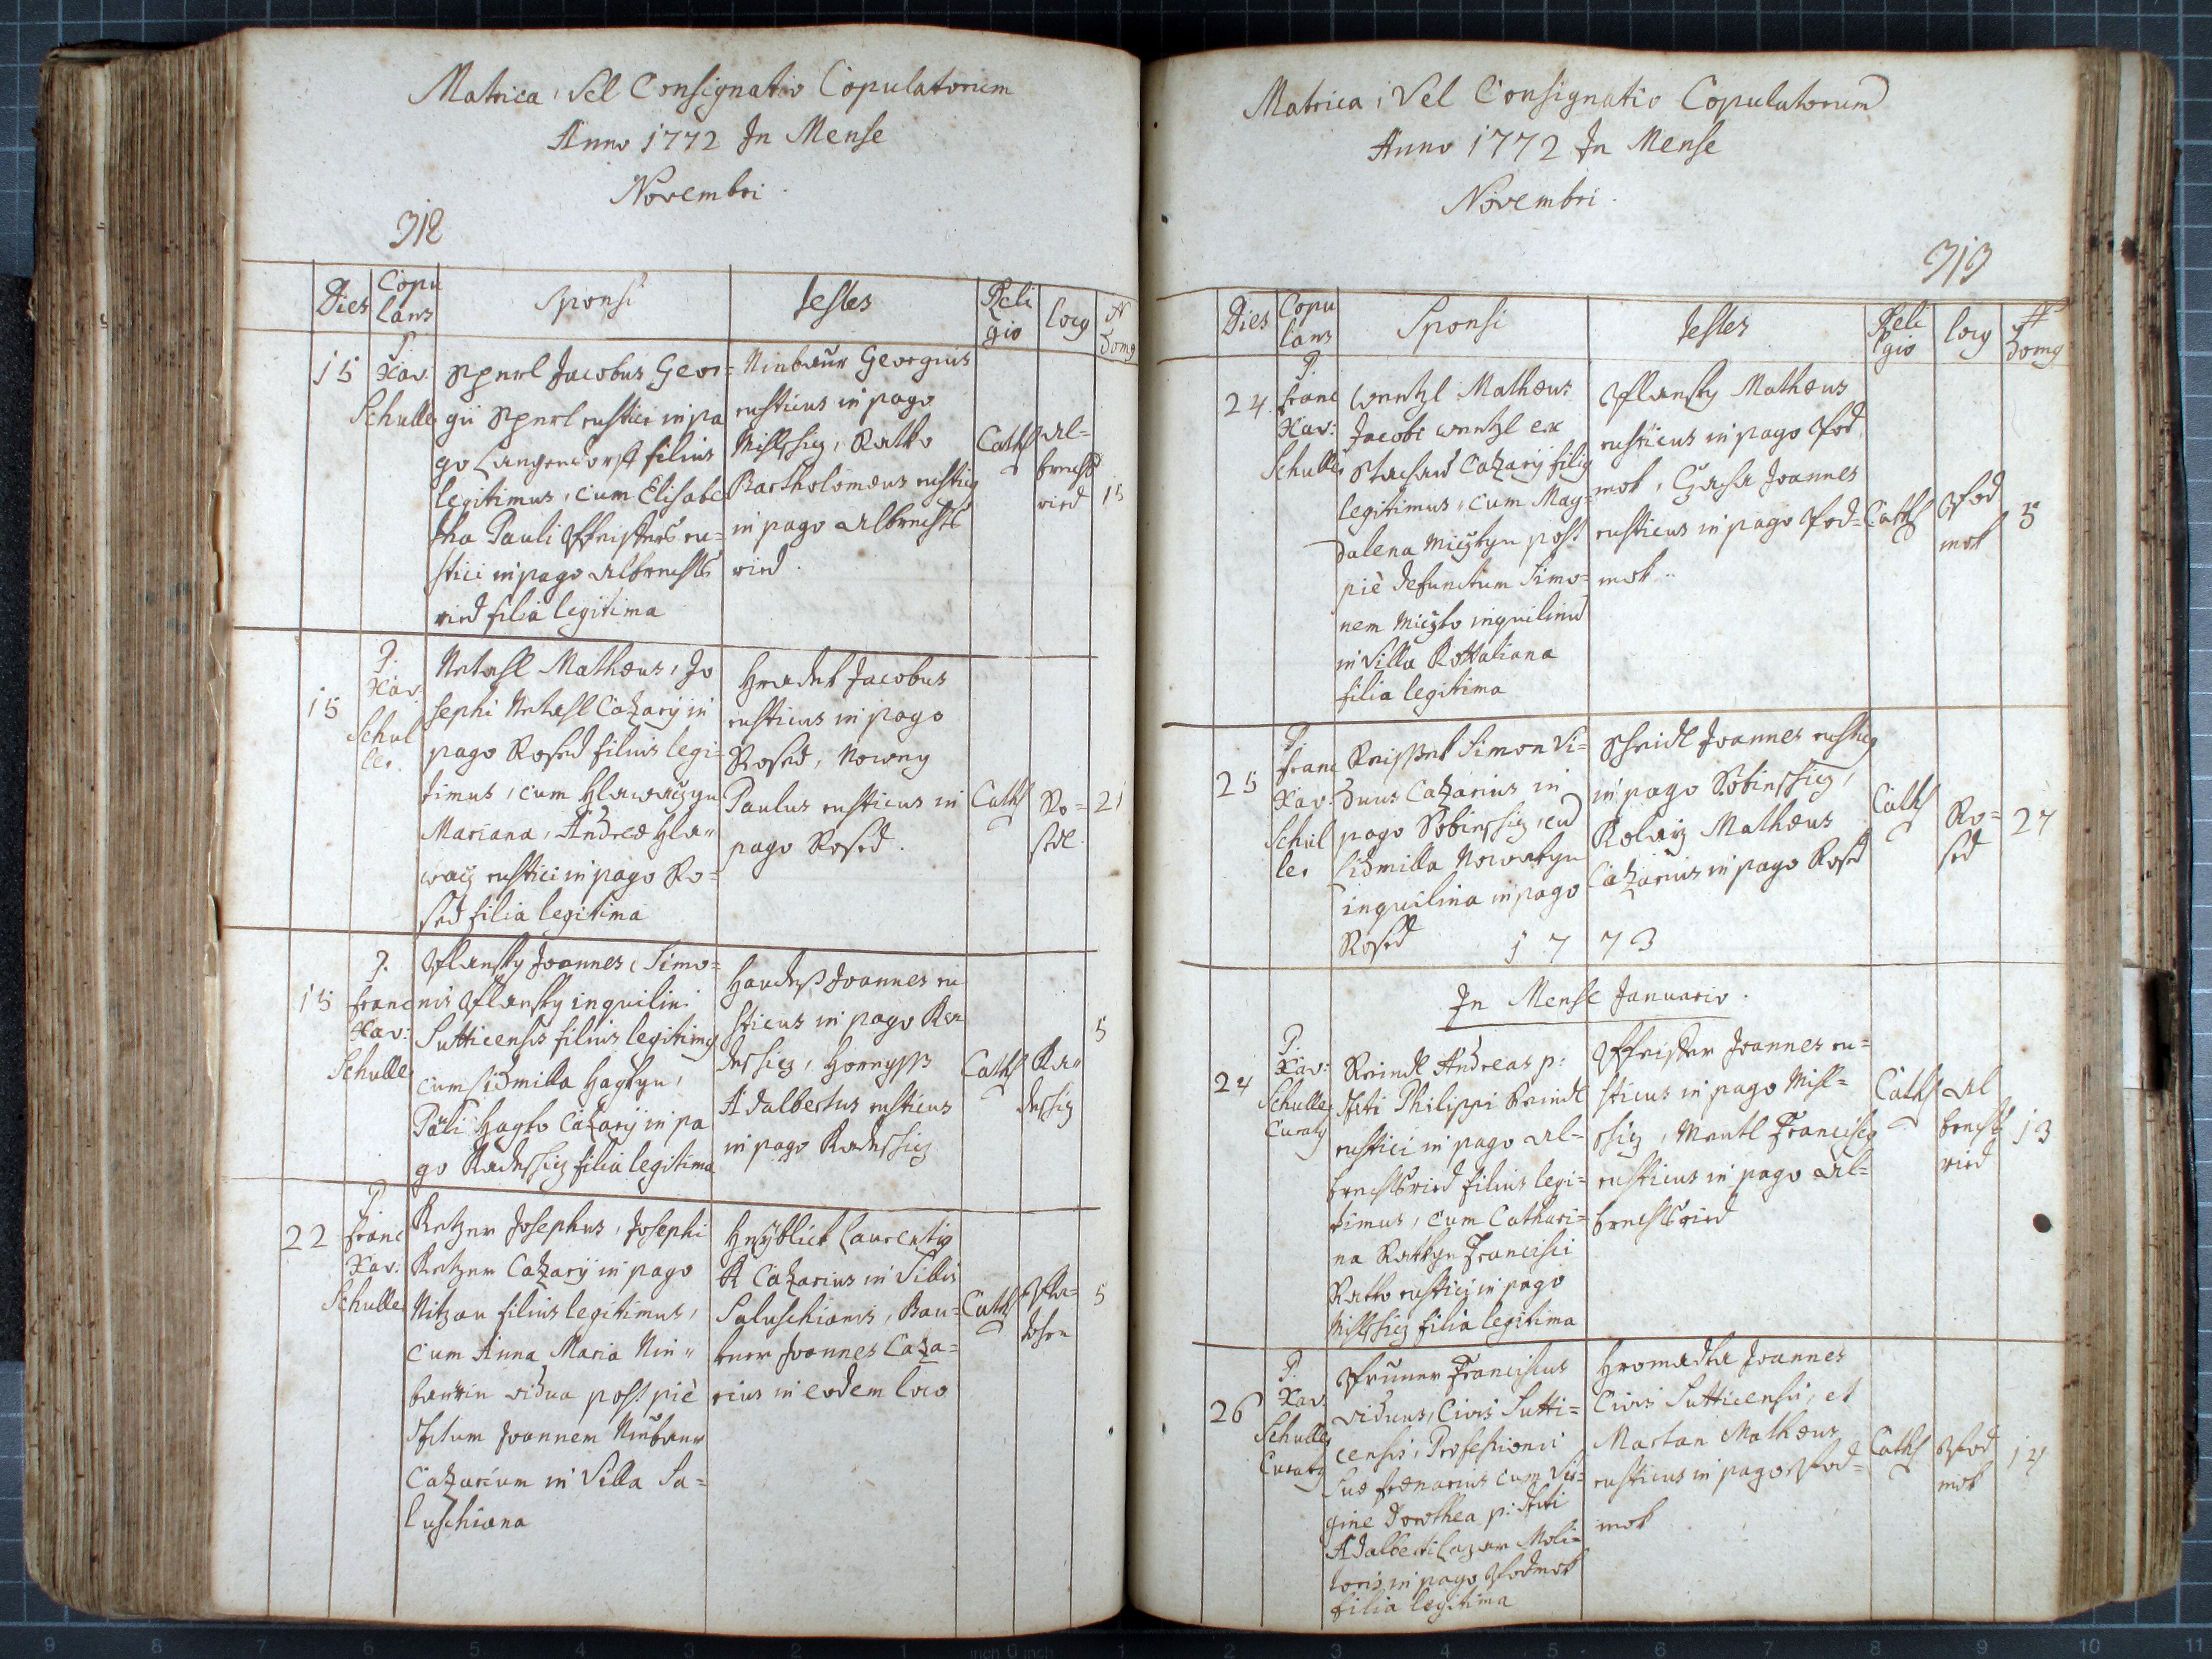 Matrica, Vel Consignatio Copulatorum
Anno 1772 In Mense
Novembri.
312
Dies
Copu
lans
Sponsi
Testes
Reli
gio
locg
N
Domg
15
P.
Xav.
Schuller
Sperl Jacobus Geor=
gii Sperl rustici in pa
go Langendorff filius
legitimus, cum Elisabe
tha Pauli Pfeisters ru=
stici in pago Albrechts
ried filia legitima
Neubaur Georgius
rusticus in pago
Millschiz, Ratko
Bartholomæus rusticg
in pago Albrechts
ried.
Cath
Al=
brechts
ried
15
15
P.
Xav.
Schul
ler
Mathæus, Jo
sephi Cazarÿ in
pago Rosed filius legi=
timus, cum Hlawaczyn
Mariana, Andreæ Hla=
wacz rustici in pago Ro=
sed filia legitima
Hradek Jacobus
rusticus in pago
Rosed, Noweny
Paulus rusticus in
pago Rosed.
Cath
Ro=
sed
21
15
P.
Franc
Xav:
Schuller
Pflansky Joannes, Simo=
nis Pflansky inquilini
Sutticensis filius legitimg
cum Lidmilla Hagkyn,
Pauli Hagko Cazarÿ in pa
go Radeschiz filia legitima
Joannes ru
sticus in pago Ra
deschiz,
Adalbertus rusticus
in pago Radeschiz
Cath
Ra=
deschiz
5
22
P.
Franc
Xav.
Schuller
Retzer Josephus, Josephi
Retzer Cazarÿ in pago
Nitzau filius legitimus,
cum Anna Maria Neu=
baurin vidua post piè
dfctum Joannem Neubaur
Cazarium in Villa Sa=
luschiana
Laurentig
Cazarius in Villis
Saluschianis, Bau=
Joannes Caza=
rius in eodem loco
Cath
5
Matrica, Vel Consignatio Copulatorum
Anno 1772 In Mense
Novembri.
313
Dies
Copu
lans
Sponsi
Testes
Reli
gio
locg
N
Domg
24.
P.
Franc
Xav:
Schuller
Wentzl Mathæus
Jacobi Wentzl ex
Stachau Cazarÿ filig
legitimus, cum Mag=
dalena Miczkyn post
piè defunctum Simo=
nem Miczko inquilinũ
in Villa Rottaliana
filia legitima
Pflansky Mathæus
rusticus in pago Pod
mok, Joannes
rusticus in pago Pod=
mok..
Cath
Pod
mok
5
25
P.
Franc
Xav.
Schul
ler
Simon Vi=
duus Cazarius in
pago Sobieschiz, cũ
Lidmilla Nowakyn
inquilina in pago
Rosed
Scheidl Joannes rusticg
in pago Sobieschiz,
Kolarz Mathæus
Cazarius in pago Rosed
Cath
Ro=
sed
27
1773
In Mense Januario.
24
P.
Xav:
Schuller
Curatg
Reindl Andreas p:
dfcti Philippi Reindl
rustici in pago Al=
brechtsried filius legi=
timus, cum Cathari=
na Ratkyn Francisci
Ratko rustici in pago
Millschiz filia legitima
Pfeister Joannes ru=
sticus in pago Mill=
schiz, Mentl Franciscg
rusticus in pago Al=
brechtsried
Cath
Al
brechts
ried
13
26
P.
Xav.
Schuller
Curatg
Pruner Franciscus
viduus, Civis Sutti=
censis, Professionis
suæ frænarius cum Vir=
gine Dorothea p: dfcti
Adalberti Lazar Moli=
toris in pago Podmok
filia legitima
Hromadka Joannes
Civis Sutticensis, et
Martan Mathæus
rusticus in pago Pod=
mok
Cath
Pod
mok
14